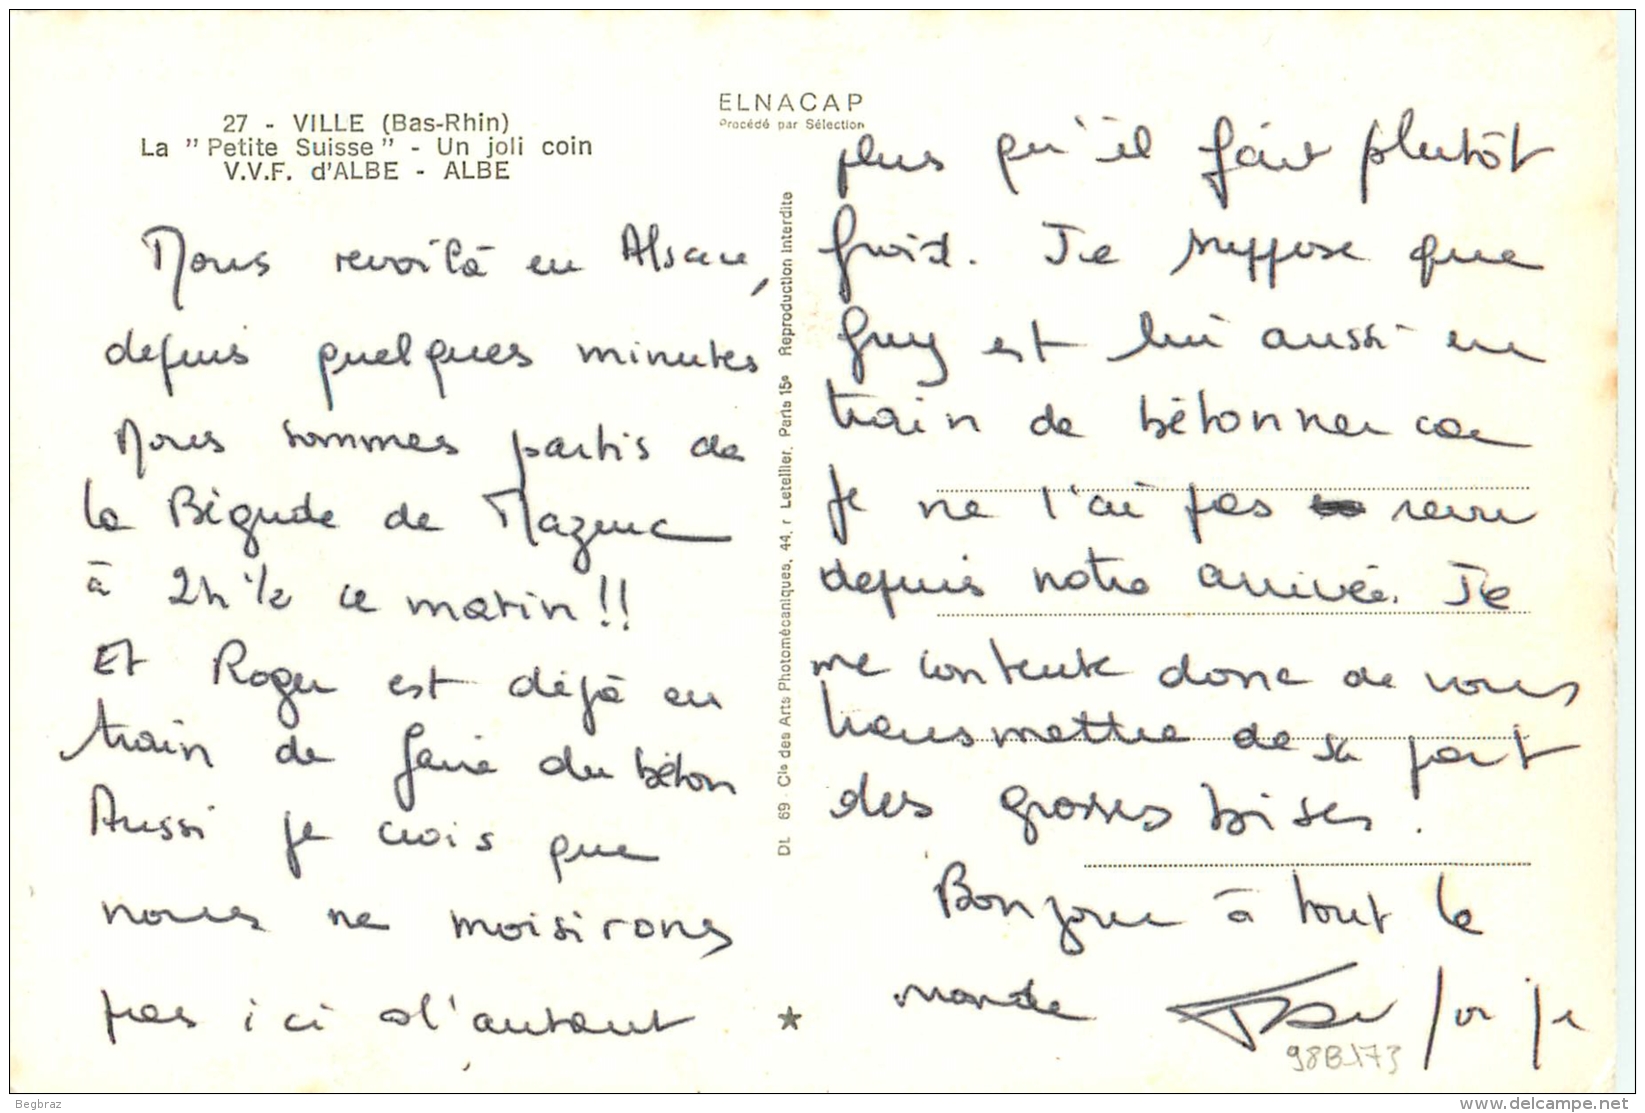 27 - VILLE (Bas-Rhin)
La "Petite Suisse" - Un joli coin
V.V.F. d'ALBE - ALBE
Nous revoilà en Alsace,
depuis quelques minutes
Nous sommes partis de
la Bégude de Mazenc
à 2h 1/2 ce matin!!
Et Roger est déjà en
train de faire du béton
Aussi je crois que
nous ne moisirons
pas ici d'autant
ELNACAP
Procédé par Sélection
DL 69 - Cie des Arts Photomécaniques, 44, r Letellier, Paris 15e Reproduction interdite
plus qu'il fait plutôt
froid. Je suppose que
Guy est lui aussi en
train de bétonner car
je ne l'ai pas revu
depuis notre arrivée. Je
me contente donc de vous
transmettre de sa part
des grosses bises.
Bonjour à tout le
monde
98B173
Begbraz
www.delcampe.net